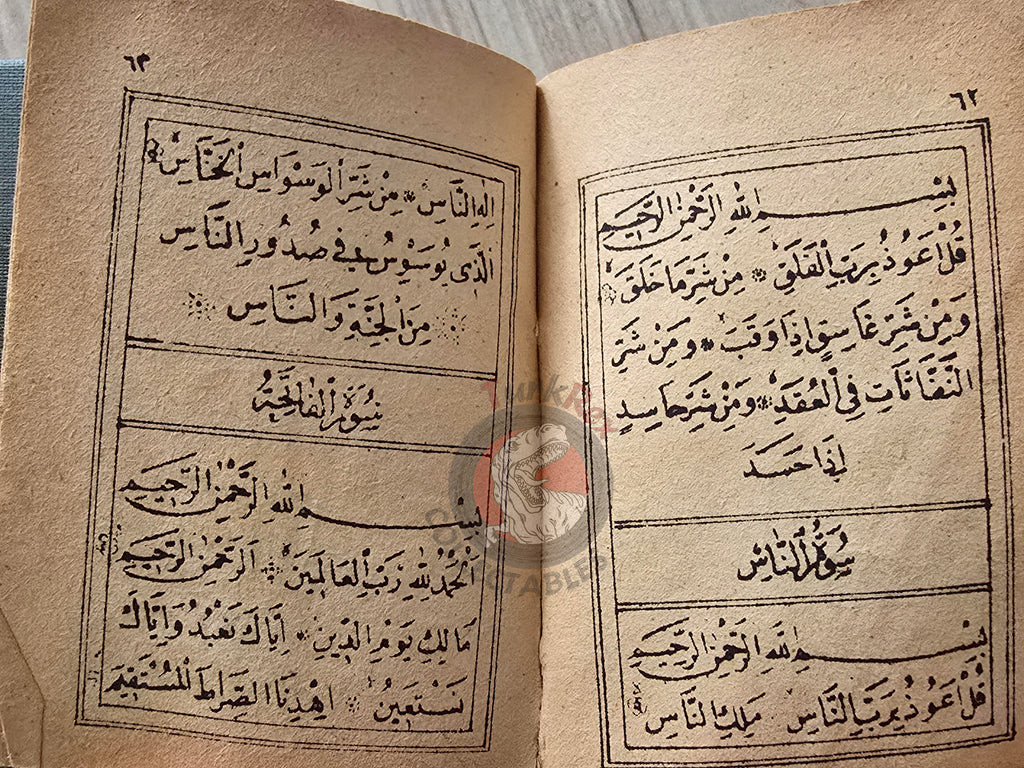 ٦٢
بِسْمِ اللهِ الرَّحْمٰنِ الرَّحِيمِ
قُلْ اَعُوذُ بِرَبِّ الْفَلَقِ ۞ مِنْ شَرِّ مَا خَلَقَ ۞
وَمِنْ شَرِّ غَاسِقٍ اِذَا وَقَبَ ۞ وَمِنْ شَرِّ
النَّفَّاثَاتِ فِي الْعُقَدِ ۞ وَمِنْ شَرِّ حَاسِدٍ
اِذَا حَسَدَ
سُورَةُ النَّاسِ
بِسْمِ اللهِ الرَّحْمٰنِ الرَّحِيمِ
قُلْ اَعُوذُ بِرَبِّ النَّاسِ مَلِكِ النَّاسِ
٦٣
اِلٰهِ النَّاسِ ۞ مِنْ شَرِّ الْوَسْوَاسِ الْخَنَّاسِ ۞
الَّذِى يُوَسْوِسُ فِى صُدُورِ النَّاسِ
۞ مِنَ الْجِنَّةِ وَالنَّاسِ ۞
سُورَةُ الْفَاتِحَةِ
بِسْمِ اللهِ الرَّحْمٰنِ الرَّحِيمِ
اَلْحَمْدُ لِلّٰهِ رَبِّ الْعَالَمِينَ ۞ اَلرَّحْمٰنِ الرَّحِيمِ
مَالِكِ يَوْمِ الدِّينِ ۞ اِيَّاكَ نَعْبُدُ وَاِيَّاكَ
نَسْتَعِينُ ۞ اِهْدِنَا الصِّرَاطَ الْمُسْتَقِيمَ
JunkRex